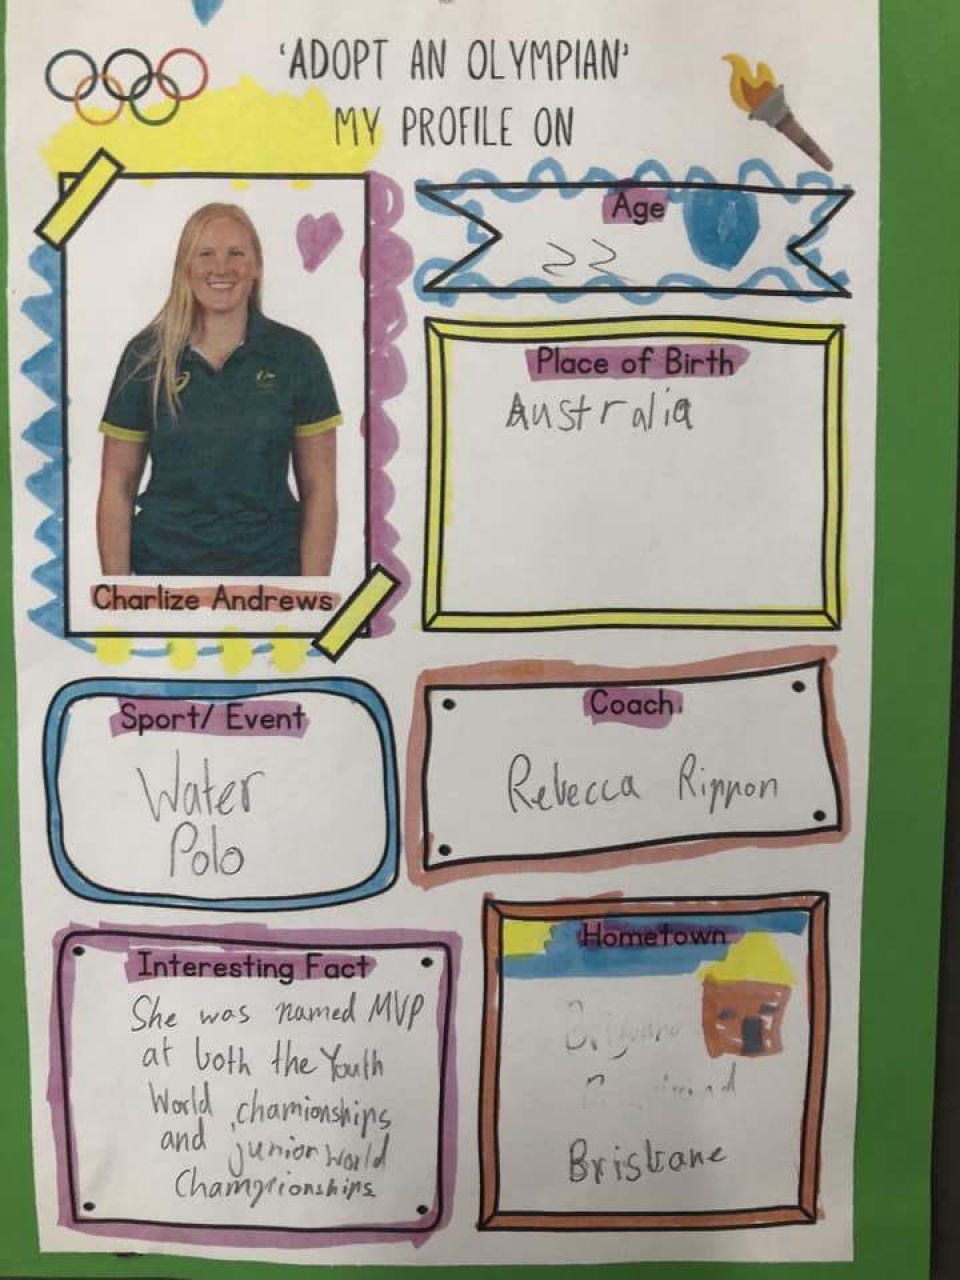 'ADOPT AN OLYMPIAN'
MY PROFILE ON
Age
22
Place of Birth
Australia
Charlize Andrews
Sport/ Event
Water
Polo
Coach
Rebecca Rippon
Interesting Fact
She was named MVP
at both the Youth
World chamionships
and junior World
Championships
Hometown
Brisbane